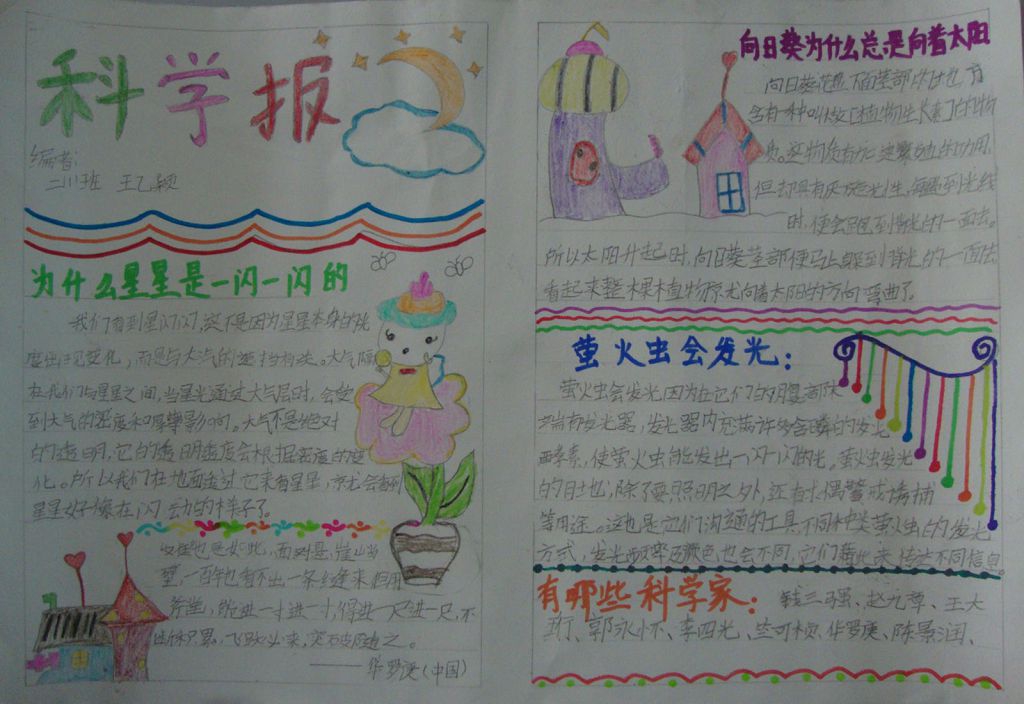 科学报
编者:
二川班 王乙颖
为什么星星是一闪一闪的
我们看到星闪闪,这不是因为星星本身的光
度出现变化,而是与大气的遮挡有关。大气隔
在我们与星星之间,当星光通过大气层时,会受
到大气的密度和厚薄影响。大气不是绝对
的透明,它的透明程度会根据密度的变
化。所以我们在地面透过它来看星星,就会看到
星星好像在闪动的样子了。
也是如此,面对悬崖
壁,一百年也看不出一条缝来,但用
斧凿,能进一寸进一寸,得进一尺进一尺,不
断积累,飞跃必来,突破随之。
——华罗庚(中国)
向日葵为什么总是向着太阳
向日葵花盘下面茎部的地方
含有一种叫做「植物生长素」的物
质。这物质有
但却具有光性,每遇到光线
时,便会跑到背光的一面去。
所以太阳升起时,向日葵茎部便马上躲到背光的一面去
看起来整棵植物就向着太阳的方向弯曲了。
萤火虫会发光:
萤火虫会发光,因为在它们的腹部末
端有发光器,发光器内充满许多含磷的发光
酉素,使萤火虫能发出一闪一闪的光。萤火虫发光
的目地,除了要照明之外,还有求偶警戒诱捕
等用途。这也是它们沟通的工具,不同种类萤火虫的发光
方式,发光频率及颜色也会不同,它们藉此来传达不同信息。
有哪些科学家:钱三强、赵九章、王大
珩、郭永怀、李四光、竺可桢、华罗庚、陈景润、